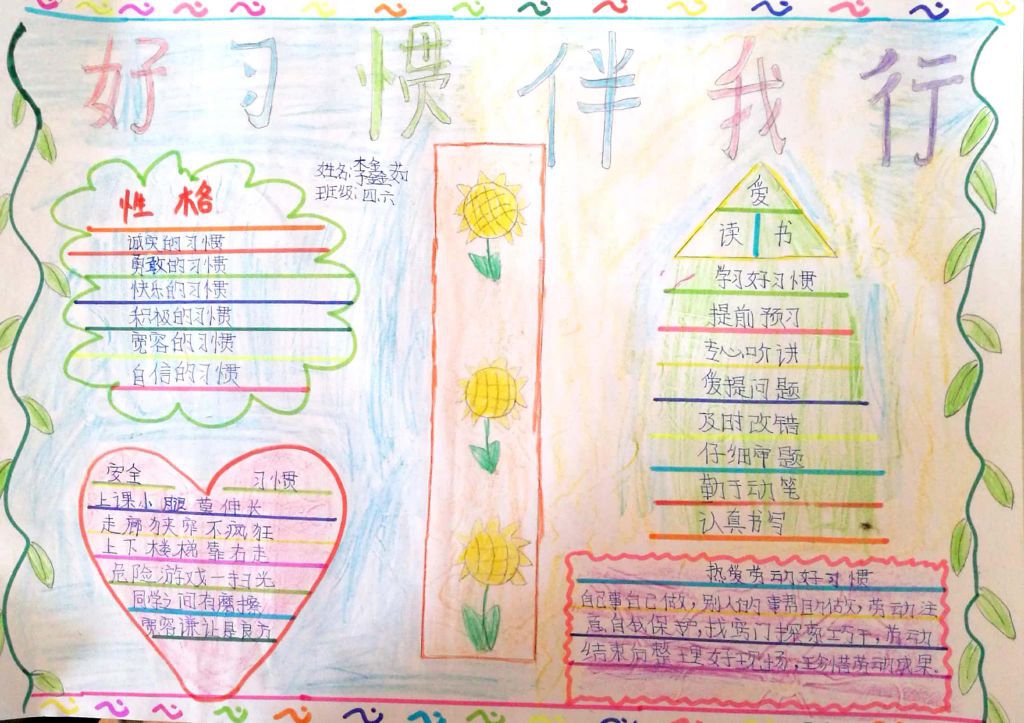 好习惯伴我行
姓名:李鑫茹
班级:四六
性格
诚实的习惯
勇敢的习惯
快乐的习惯
积极的习惯
宽容的习惯
自信的习惯
爱
读书
学习好习惯
提前预习
专心听讲
爱提问题
及时改错
仔细审题
勤于动笔
认真书写
安全 习惯
上课小腿莫伸长
走廊狭窄不疯狂
上下楼梯靠右走
危险游戏一扫光
同学之间有磨擦
宽容谦让是良方
热爱劳动好习惯
自己事自己做,别人的事帮助做,劳动注
意自我保护,找窍门探索技巧,劳动
结束后整理好现场,珍惜劳动成果.